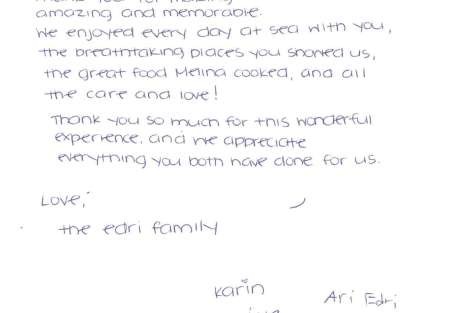 amazing and memorable.
We enjoyed every day at sea with you,
the breathtaking places you showed us,
the great food Melina cooked, and all
the care and love!
Thank you so much for this wonderful
experience, and we appreciate
everything you both have done for us.
Love,
the edri family
Karin
Ari Edri